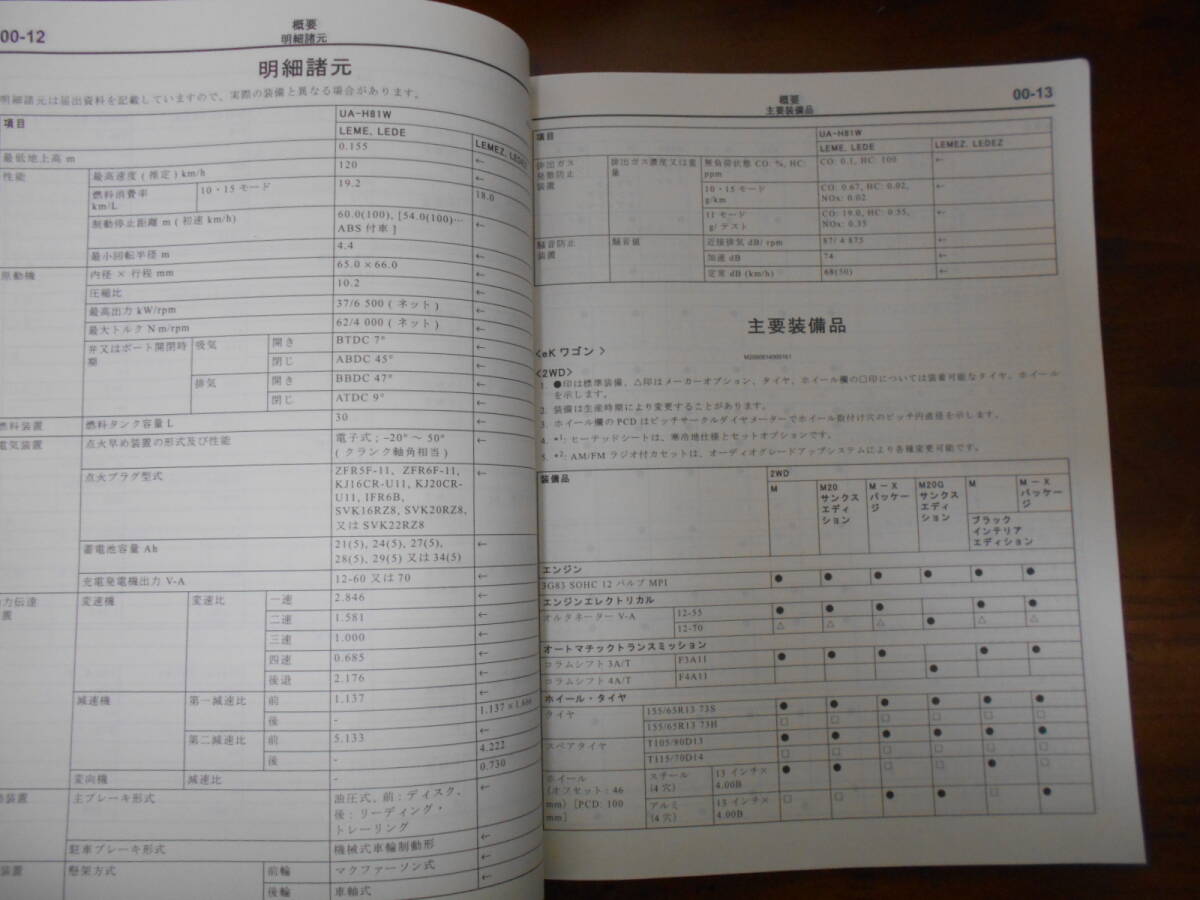 00-12
概要
明細諸元
明細諸元
明細諸元は届出資料を記載していますので、実際の装備と異なる場合があります。
項目
UA-H81W
LEME, LEDE
LEMEZ, LEDEZ
最低地上高 m
0.155
←
性能
最高速度 ( 推定 ) km/h
120
←
燃料消費率
km/L
10・15 モード
19.2
18.0
制動停止距離 m ( 初速 km/h)
60.0(100), [54.0(100)…
ABS 付車 ]
←
最小回転半径 m
4.4
←
原動機
内径 × 行程 mm
65.0 × 66.0
←
圧縮比
10.2
←
最高出力 kW/rpm
37/6 500 ( ネット )
←
最大トルク N m/rpm
62/4 000 ( ネット )
←
弁又はポート開閉時
期
吸気
開き
BTDC 7°
←
閉じ
ABDC 45°
←
排気
開き
BBDC 47°
←
閉じ
ATDC 9°
←
燃料装置
燃料タンク容量 L
30
←
電気装置
点火早め装置の形式及び性能
電子式 ; –20° ～ 50°
( クランク軸角相当 )
←
点火プラグ型式
ZFR5F-11, ZFR6F-11,
KJ16CR-U11, KJ20CR-
U11, IFR6B,
SVK16RZ8, SVK20RZ8,
又は SVK22RZ8
←
蓄電池容量 Ah
21(5), 24(5), 27(5),
28(5), 29(5) 又は 34(5)
←
充電発電機出力 V-A
12-60 又は 70
←
力伝達
置
変速機
変速比
一速
2.846
←
二速
1.581
←
三速
1.000
←
四速
0.685
←
後退
2.176
←
減速機
第一減速比
前
1.137
←
後
-
1.137 × 1.666
第二減速比
前
5.133
←
後
-
4.222
変向機
減速比
-
0.730
装置
主ブレーキ形式
油圧式、前 : ディスク、
後 : リーディング・
トレーリング
←
駐車ブレーキ形式
機械式車輪制動形
←
装置
懸架方式
前輪
マクファーソン式
←
後輪
車軸式
←
概要
主要装備品
00-13
項目
UA-H81W
LEME, LEDE
LEMEZ, LEDEZ
排出ガス
発散防止
装置
排出ガス濃度又は重
量
無負荷状態 CO %, HC:
ppm
CO: 0.1, HC: 100
←
10・15 モード
g/km
CO: 0.67, HC: 0.02,
NOx: 0.02
←
11 モード
g/ テスト
CO: 19.0, HC: 0.55,
NOx: 0.35
←
騒音防止
装置
騒音値
近接排気 dB/ rpm
87/ 4 875
←
加速 dB
74
←
定常 dB (km/h)
68(50)
←
主要装備品
M2000014000161
<eK ワゴン >
<2WD>
1. ●印は標準装備、△印はメーカーオプション、タイヤ、ホイール欄の□印については装着可能なタイヤ、ホイール
を示します。
2. 装備は生産時期により変更することがあります。
3. ホイール欄の PCD はピッチサークルダイヤメーターでホイール取付け穴のピッチ円直径を示します。
4. *1: ヒーテッドシートは、寒冷地仕様とセットオプションです。
5. *2: AM/FM ラジオ付カセットは、オーディオグレードアップシステムにより各種変更可能です。
装備品
2WD
M
M20
サンクス
エディ
ション
M – X
パッケー
ジ
M20G
サンクス
エディ
ション
M
M – X
パッケー
ジ
ブラック
インテリア
エディション
エンジン
3G83 SOHC 12 バルブ MPI
● ● ● ● ● ●
エンジンエレクトリカル
オルタネーター V-A
12-55
● ● ● ● ●
12-70
△ △ △ ● △ △
オートマチックトランスミッション
コラムシフト 3A/T
F3A11
● ● ● ● ●
コラムシフト 4A/T
F4A11
●
ホイール・タイヤ
タイヤ
155/65R13 73S
● ● ● ● ● ●
155/65R13 73H
□ □ □ □ □ □
スペアタイヤ
T105/90D13
● ● ● ● ● ●
T115/70D14
□ □ □ □ □ □
ホイール
(オフセット : 46
mm) [PCD: 100
mm]
スチール
(4 穴)
13 インチ ×
4.00B
● ● □ □ ● □
アルミ
(4 穴)
13 インチ ×
4.00B
□ □ ● ● □ ●